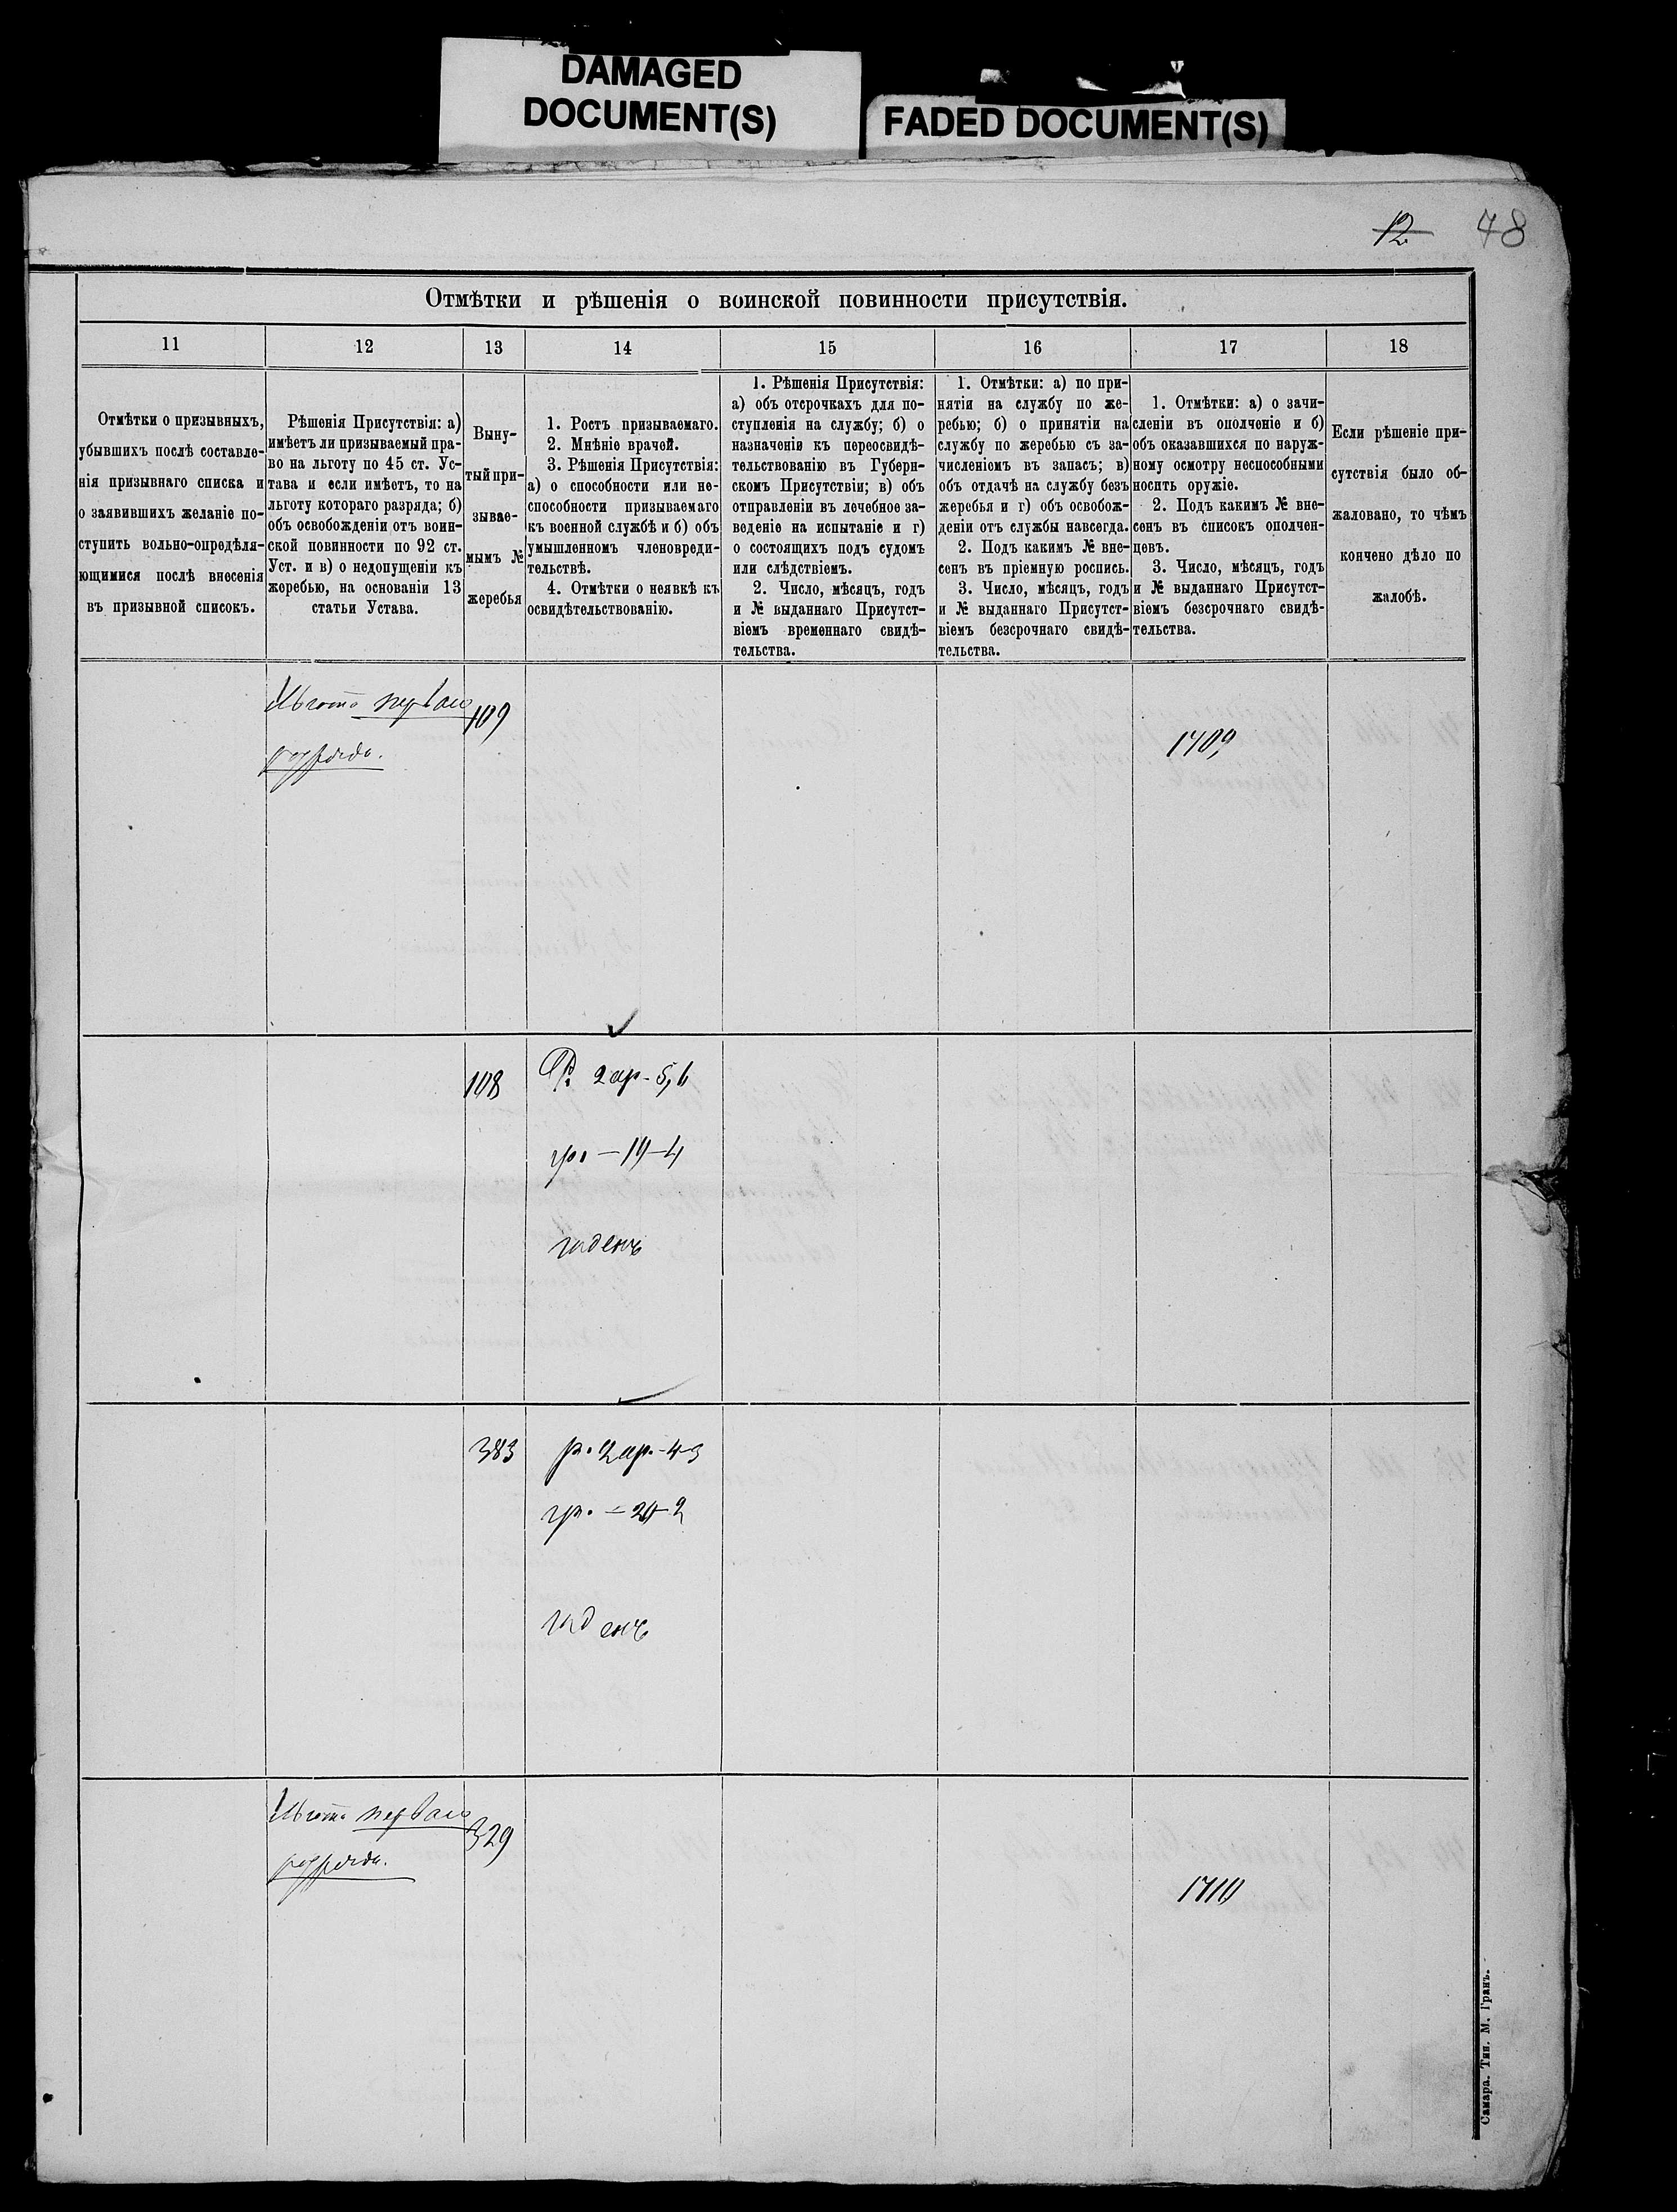 DAMAGED
DOCUMENT(S)
FADED DOCUMENT(S)
12 48
Отмѣтки и рѣшенія о воинской повинности присутствія.
11 12 13 14 15 16 17 18
Отмѣтки о призывныхъ,
убывшихъ послѣ составле-
нія призывнаго списка и
о заявившихъ желаніе по-
ступить вольно-опредѣля-
ющимися послѣ внесенія
въ призывной списокъ.
Рѣшенія Присутствія: а)
имѣетъ ли призываемый пра-
во на льготу по 45 ст. Ус-
тава и если имѣетъ, то на
льготу котораго разряда; б)
объ освобожденіи отъ воин-
ской повинности по 92 ст.
Уст. и в) о недопущеніи къ
жеребью, на основаніи 13
статьи Устава.
Выну-
тый при-
зывае-
мымъ №
жеребья
1. Ростъ призываемаго.
2. Мнѣніе врачей.
3. Рѣшенія Присутствія:
а) о способности или не-
способности призываемаго
къ военной службѣ и б) объ
умышленномъ членовреди-
тельствѣ.
4. Отмѣтки о неявкѣ къ
освидѣтельствованію.
1. Рѣшенія Присутствія:
а) объ отсрочкахъ для по-
ступленія на службу; б) о
назначеніи къ переосвидѣ-
тельствованію въ Губерн-
скомъ Присутствіи; в) объ
отправленіи въ лечебное за-
веденіе на испытаніе и г)
о состоящихъ подъ судомъ
или слѣдствіемъ.
2. Число, мѣсяцъ, годъ
и № выданнаго Присутст-
віемъ временнаго свидѣ-
тельства.
1. Отмѣтки: а) по при-
нятіи на службу по же-
ребью; б) о принятіи на
службу по жеребью съ за-
численіемъ въ запасъ; в)
объ отдачѣ на службу безъ
жеребья и г) объ освобож-
деніи отъ службы навсегда.
2. Подъ какимъ № вне-
сенъ въ пріемную роспись.
3. Число, мѣсяцъ, годъ
и № выданнаго Присутст-
віемъ безсрочнаго свидѣ-
тельства.
1. Отмѣтки: а) о зачи-
сленіи въ ополченіе и б)
объ оказавшихся по наруж-
ному осмотру неспособными
носить оружіе.
2. Подъ какимъ № вне-
сенъ въ списокъ ополчен-
цевъ.
3. Число, мѣсяцъ, годъ
и № выданнаго Присутст-
віемъ безсрочнаго свидѣ-
тельства.
Если рѣшеніе при-
сутствія было об-
жаловано, то чѣмъ
кончено дѣло по
жалобѣ.
Льгота перваго
разряда.
109
1709
108
Р. 2 ар - 5,6
гр. - 19-4
годенъ
383
р. 2 ар. - 4-3
гр. - 20-2
годенъ
Льгота перваго
разряда.
329
1710
Самара. Тип. М. Гранъ.